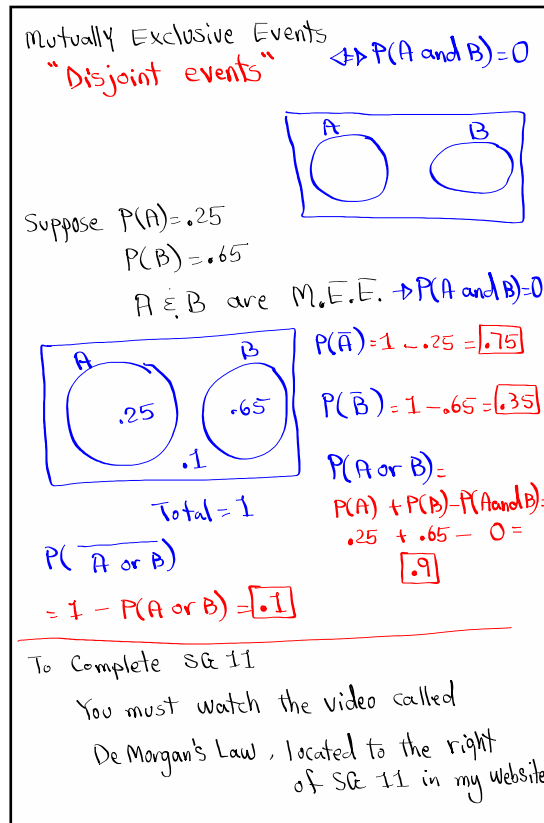 Mutually Exclusive Events
"Disjoint events" ⇔ P(A and B)=0
A B
Suppose P(A)=.25
P(B)=.65
A & B are M.E.E. → P(A and B)=0
A B
.25 .65
.1
Total = 1
P(Ā)=1 - .25 = .75
P(B̄) = 1 - .65 = .35
P(A or B)=
P(A) + P(B) - P(A and B)=
.25 + .65 - 0 =
.9
P( A̅ ̅o̅r̅ ̅B̅ )
= 1 - P(A or B) = .1
To Complete SG 11
You must watch the video called
De Morgan's Law, located to the right
of SG 11 in my website